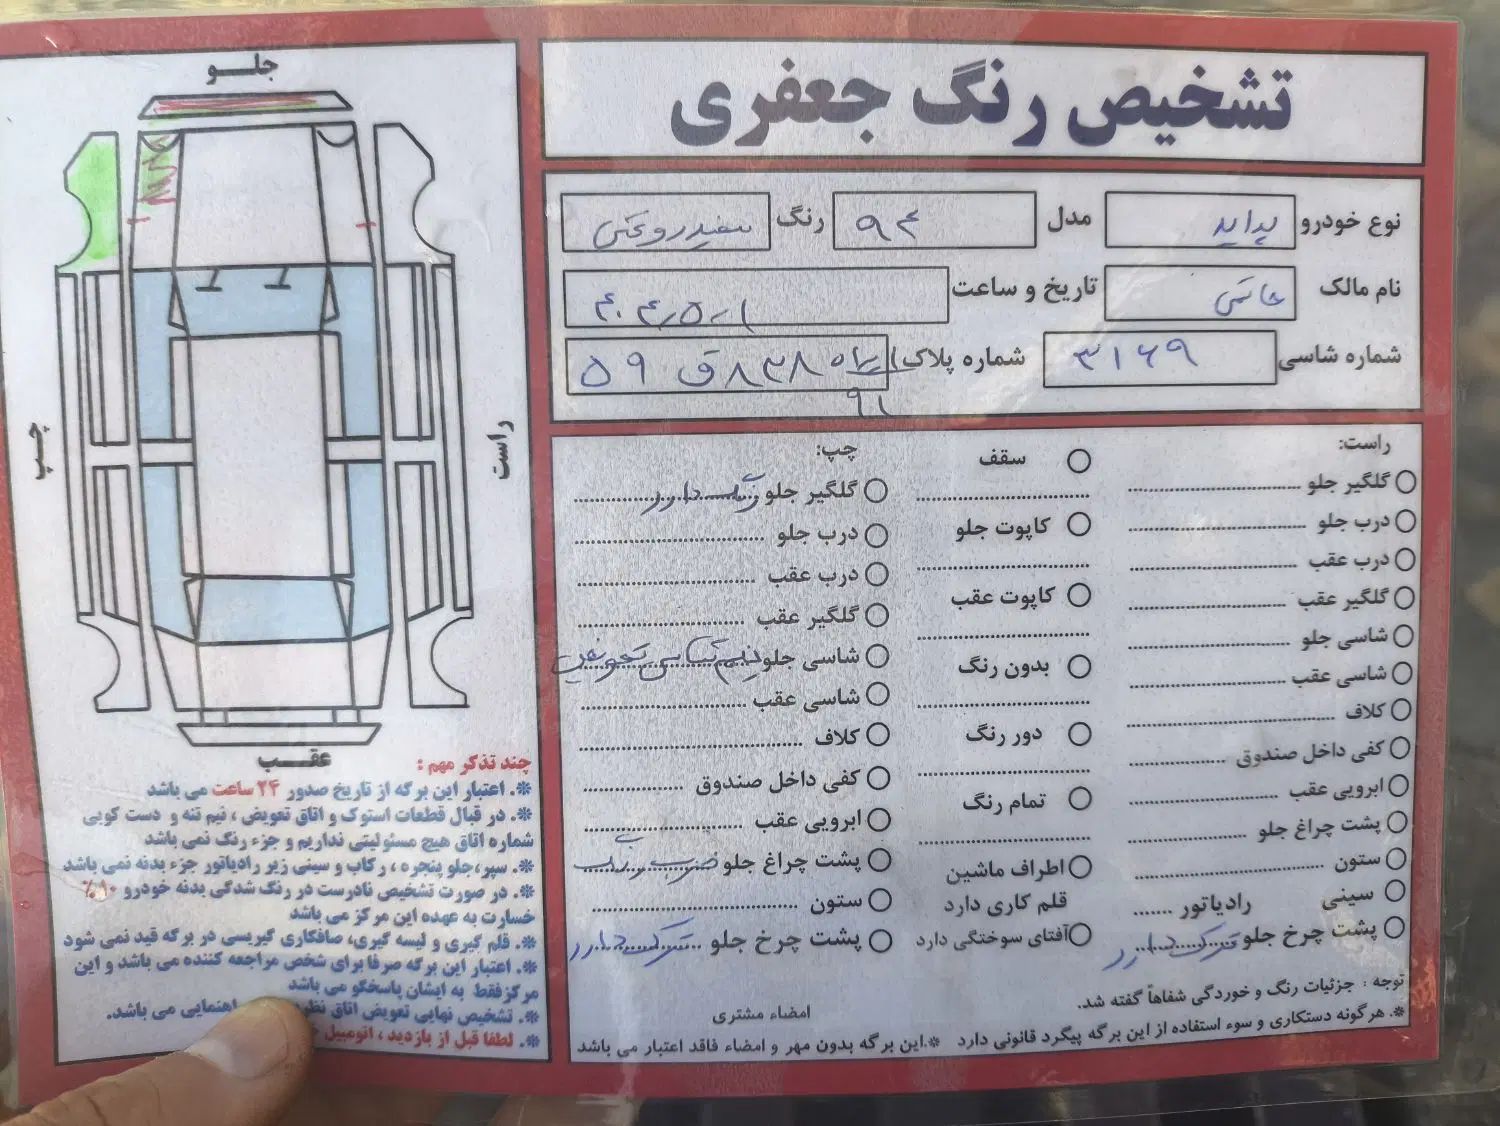 تشخیص رنگ جعفری
نوع خودرو پراید مدل ۹۴ رنگ سفید روغنی
نام مالک تاریخ و ساعت ۴۰۴٫۵٫۱
شماره شاسی ۳۱۶۹ شماره پلاک ۸۳۸ ق ۵۹
۹۱
راست:
گلگیر جلو
درب جلو
درب عقب
گلگیر عقب
شاسی جلو
شاسی عقب
کلاف
کفی داخل صندوق
ابرویی عقب
پشت چراغ جلو
ستون
سینی رادیاتور
پشت چرخ جلو ترک دارد
سقف
کاپوت جلو
کاپوت عقب
بدون رنگ
دور رنگ
تمام رنگ
اطراف ماشین
قلم کاری دارد
آفتای سوختگی دارد
چپ:
گلگیر جلو رنگ دارد
درب جلو
درب عقب
گلگیر عقب
شاسی جلو نیم شاسی تعویض
شاسی عقب
کلاف
کفی داخل صندوق
ابرویی عقب
پشت چراغ جلو ضرب رنگ
ستون
پشت چرخ جلو ترک دارد
توجه : جزئیات رنگ و خوردگی شفاهاً گفته شد.
*. هرگونه دستکاری و سوء استفاده از این برگه پیگرد قانونی دارد
*. این برگه بدون مهر و امضاء فاقد اعتبار می باشد
امضاء مشتری
جلـــو
چپ
راست
عقـــب
چند تذکر مهم :
*. اعتبار این برگه از تاریخ صدور ۲۴ ساعت می باشد
*. در قبال قطعات استوک و اتاق تعویض ، نیم تنه و دست کوبی
شماره اتاق هیچ مسئولیتی نداریم و جزء رنگ نمی باشد
*. سپر،جلو پنجره ، رکاب و سینی زیر رادیاتور جزء بدنه نمی باشد
*. در صورت تشخیص نادرست در رنگ شدگی بدنه خودرو ۱۰٪
خسارت به عهده این مرکز می باشد
*. قلم گیری و لیسه گیری، صافکاری گیریسی در برگه قید نمی شود
*. اعتبار این برگه صرفا برای شخص مراجعه کننده می باشد و این
مرکز فقط به ایشان پاسخگو می باشد
*. تشخیص نهایی تعویض اتاق راهنمایی می باشد.
*. لطفا قبل از بازدید ، اتومبیل